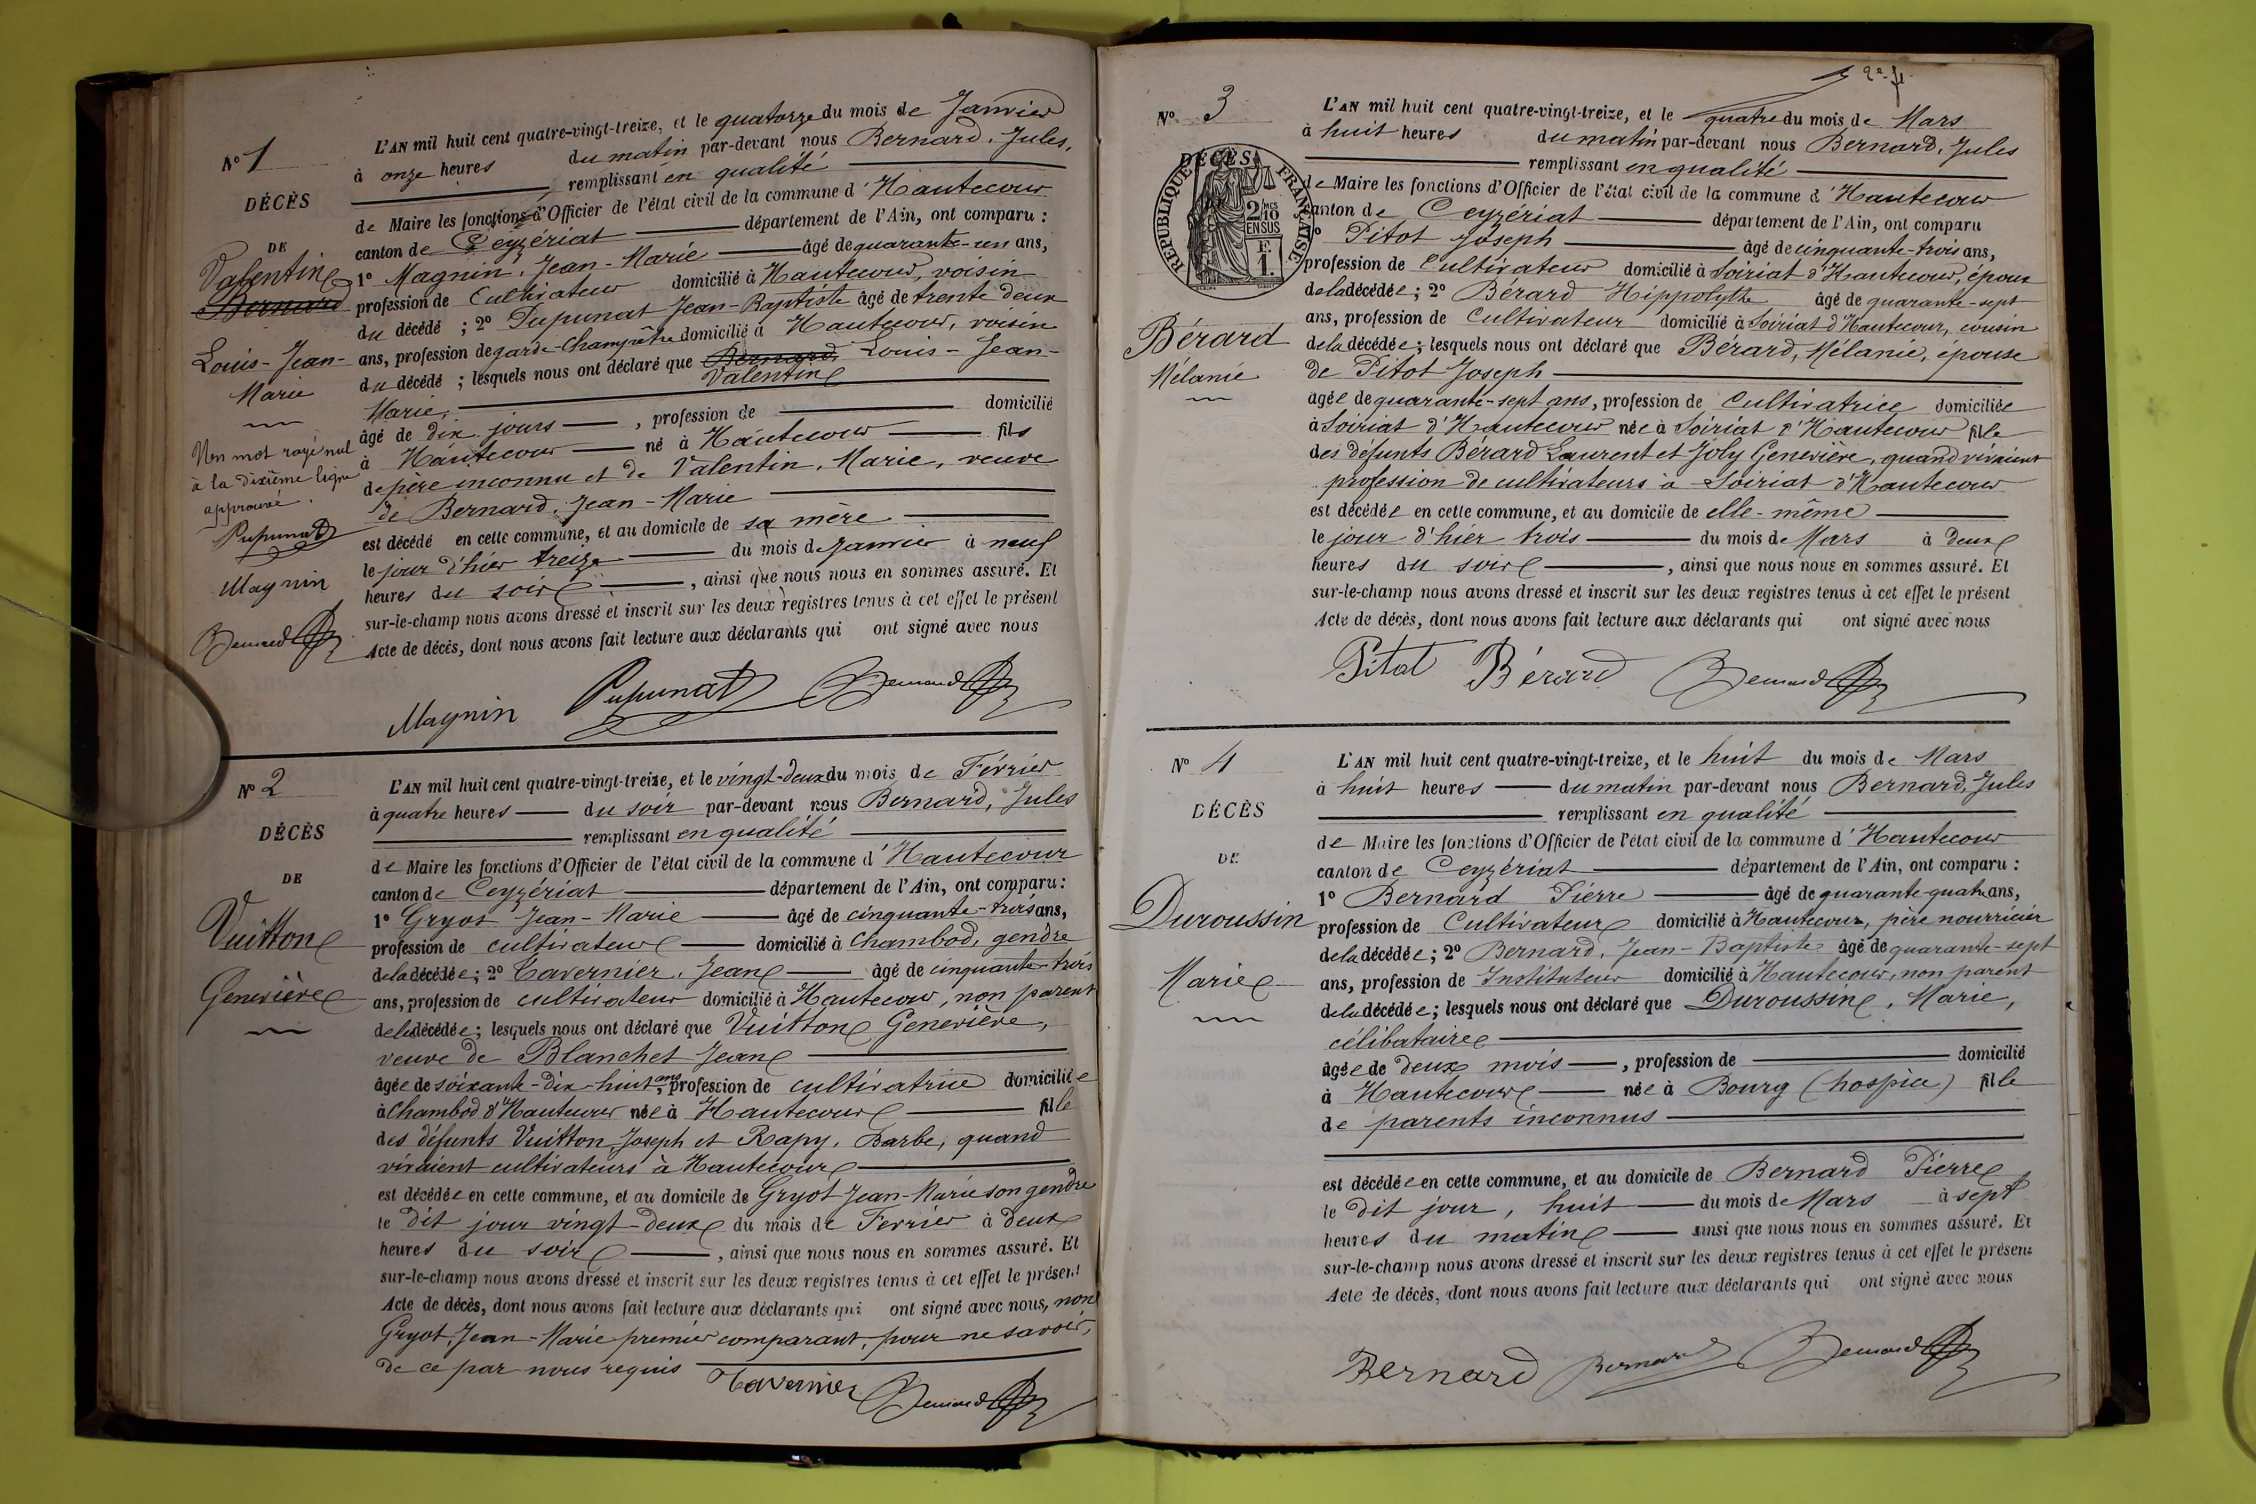 N° 1
DÉCÈS
DE
Valentin
Bernard
Louis-Jean-
Marie
Un mot rayé nul
à la dixième ligne
approuvé.
Pupunat
Magnin
Bernard
L'AN mil huit cent quatre-vingt-treize, et le quatorze du mois de Janvier
à onze heures du matin par-devant nous Bernard, Jules,
remplissant en qualité
de Maire les fonctions d'Officier de l'état civil de la commune d'Hautecour
canton de Ceyzériat département de l'Ain, ont comparu :
1° Magnin, Jean-Marie âgé de quarante-un ans,
profession de Cultivateur domicilié à Hautecour, voisin
du décédé ; 2° Pupunat Jean-Baptiste âgé de trente deux
ans, profession de garde-champêtre domicilié à Hautecour, voisin
du décédé ; lesquels nous ont déclaré que Bernard, Louis-Jean-
Valentin
Marie,
âgé de dix jours, profession de domicilié
à Hautecour né à Hautecour fils
de père inconnu et de Valentin, Marie, veuve
de Bernard, Jean-Marie
est décédé en cette commune, et au domicile de sa mère
le jour d'hier treize du mois de Janvier à neuf
heures du soir, ainsi que nous nous en sommes assuré. Et
sur-le-champ nous avons dressé et inscrit sur les deux registres tenus à cet effet le présent
Acte de décès, dont nous avons fait lecture aux déclarants qui ont signé avec nous
Magnin Pupunat Bernard
N° 2
DÉCÈS
DE
Vuitton
Geneviève
L'AN mil huit cent quatre-vingt-treize, et le vingt-deux du mois de Février
à quatre heures du soir par-devant nous Bernard, Jules
remplissant en qualité
de Maire les fonctions d'Officier de l'état civil de la commune d'Hautecour
canton de Ceyzériat département de l'Ain, ont comparu :
1° Gryot Jean-Marie âgé de cinquante-trois ans,
profession de cultivateur domicilié à Chambod, gendre
de la décédée ; 2° Tavernier, Jean âgé de cinquante-trois
ans, profession de cultivateur domicilié à Hautecour, non parent
de la décédée ; lesquels nous ont déclaré que Vuitton Geneviève,
veuve de Blanchet Jean
âgée de soixante-dix-huit ans, profession de cultivatrice domiciliée
à Chambod d'Hautecour née à Hautecour fille
des défunts Vuitton Joseph et Rapy, Barbe, quand
vivaient cultivateurs à Hautecour
est décédée en cette commune, et au domicile de Gryot Jean-Marie son gendre
le dit jour vingt-deux du mois de Février à deux
heures du soir, ainsi que nous nous en sommes assuré. Et
sur-le-champ nous avons dressé et inscrit sur les deux registres tenus à cet effet le présent
Acte de décès, dont nous avons fait lecture aux déclarants qui ont signé avec nous, non
Gryot, Jean-Marie premier comparant, pour ne savoir,
de ce par nous requis
Tavernier Bernard
2e f.
N° 3
DÉCÈS
RÉPUBLIQUE FRANÇAISE
2/10 MES
EN SUS
F.
1.
Bérard
Mélanie
L'AN mil huit cent quatre-vingt-treize, et le quatre du mois de Mars
à huit heures du matin par-devant nous Bernard, Jules
remplissant en qualité
de Maire les fonctions d'Officier de l'état civil de la commune d'Hautecour
canton de Ceyzériat département de l'Ain, ont comparu
1° Pitot Joseph âgé de cinquante-trois ans,
profession de Cultivateur domicilié à Soiriat d'Hautecour, époux
de la décédée ; 2° Bérard Hippolythe âgé de quarante-sept
ans, profession de Cultivateur domicilié à Soiriat d'Hautecour, cousin
de la décédée ; lesquels nous ont déclaré que Bérard, Mélanie, épouse
de Pitot Joseph
âgée de quarante-sept ans, profession de Cultivatrice domiciliée
à Soiriat d'Hautecour née à Soiriat d'Hautecour fille
des défunts Bérard Laurent et Joly Geneviève, quand vivaient
profession de cultivateurs à Soiriat d'Hautecour
est décédée en cette commune, et au domicile de elle-même
le jour d'hier trois du mois de Mars à deux
heures du soir, ainsi que nous nous en sommes assuré. Et
sur-le-champ nous avons dressé et inscrit sur les deux registres tenus à cet effet le présent
Acte de décès, dont nous avons fait lecture aux déclarants qui ont signé avec nous
Pitot Bérard Bernard
N° 4
DÉCÈS
DE
Duroussin
Marie
L'AN mil huit cent quatre-vingt-treize, et le huit du mois de Mars
à huit heures du matin par-devant nous Bernard, Jules
remplissant en qualité
de Maire les fonctions d'Officier de l'état civil de la commune d'Hautecour
canton de Ceyzériat département de l'Ain, ont comparu :
1° Bernard Pierre âgé de quarante-quatre ans,
profession de Cultivateur domicilié à Hautecour, père nourricier
de la décédée ; 2° Bernard, Jean-Baptiste âgé de quarante-sept
ans, profession de Instituteur domicilié à Hautecour, non parent
de la décédée ; lesquels nous ont déclaré que Duroussin, Marie,
célibataire
âgée de deux mois, profession de domicilié
à Hautecour née à Bourg (hospice) fille
de parents inconnus
est décédée en cette commune, et au domicile de Bernard Pierre
le dit jour, huit du mois de Mars à sept
heures du matin ainsi que nous nous en sommes assuré. Et
sur-le-champ nous avons dressé et inscrit sur les deux registres tenus à cet effet le présent
Acte de décès, dont nous avons fait lecture aux déclarants qui ont signé avec nous
Bernard Bernard Bernard